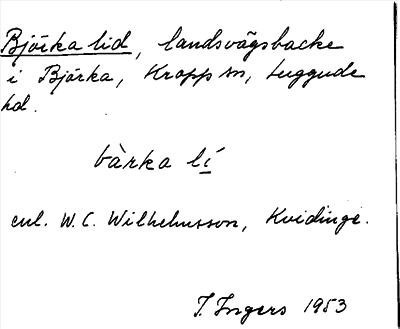 Björka lid, landsvägsbacke
i Björka, Kropps sn, Luggude
hd.
bàrka lí
enl. W. C. Wilhelmsson, Kvidinge.
I. Ingers 1953